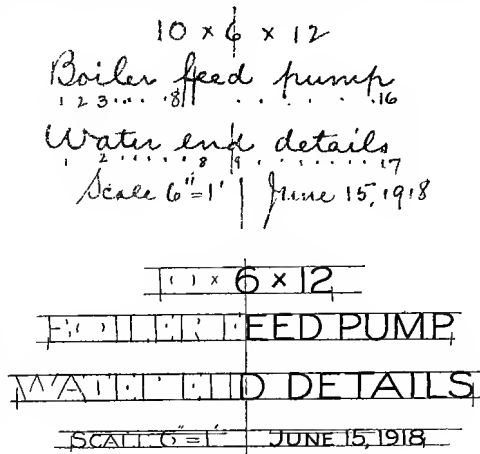 10 x 6 x 12
Boiler feed pump
1 2 3 . . . . . 8 . . . . . . 16
Water end details
1 2 . . . . . 8 9 . . . . . . . 17
Scale 6"=1' June 15, 1918
10 x 6 x 12
BOILER FEED PUMP
WATER END DETAILS
SCALE 6"=1' JUNE 15, 1918